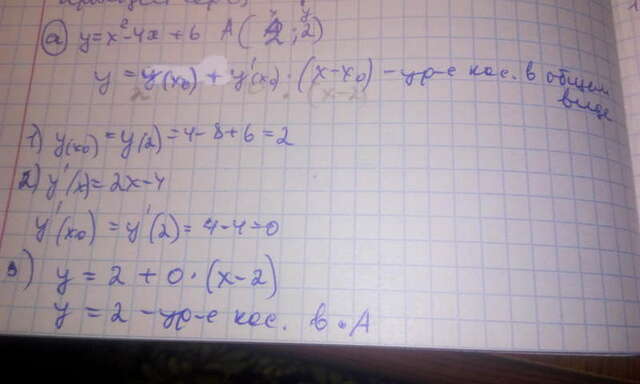 а) y=x²-4x+6 A(2;2)
y = y(x₀) + y'(x₀)·(x-x₀) - ур-е кас. в общем
виде
1) y(x₀) = y(2)=4-8+6=2
2) y'(x)=2x-4
y'(x₀) = y'(2)= 4-4=0
3) y = 2 + 0·(x-2)
y = 2 - ур-е кас. в ·A